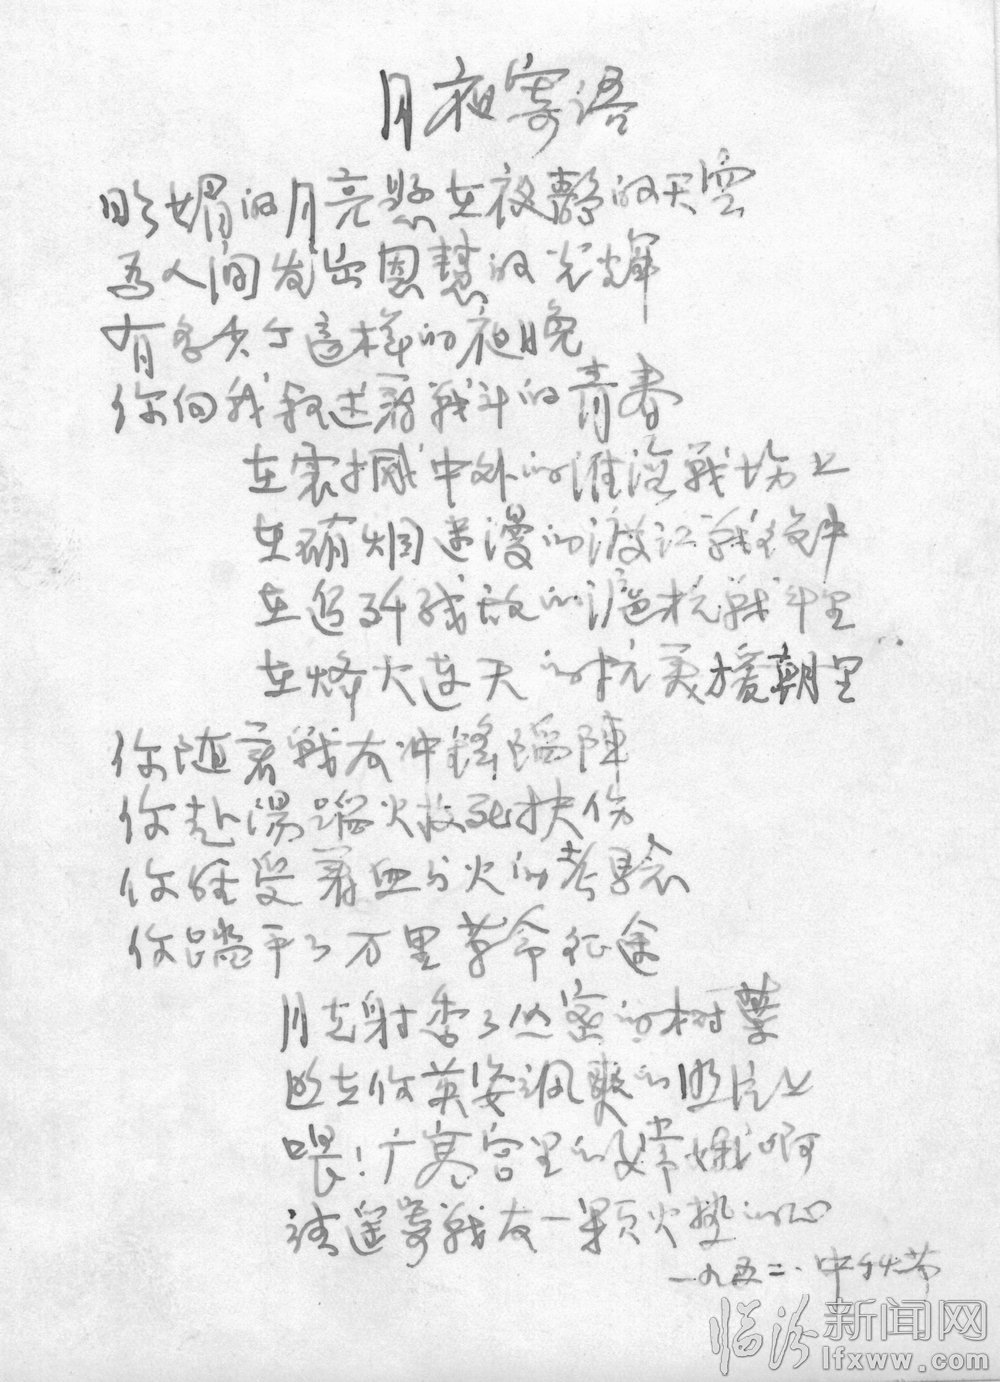 月夜寄语
明媚的月亮悬在夜静的天空
为人间发出恩慧的光辉
有多少个这样的夜晚
你向我叙述着战斗的青春
在震撼中外的淮海战场上
在硝烟迷漫的渡江战役中
在追歼残敌的沪杭战斗里
在烽火连天的抗美援朝里
你随着战友冲锋陷陣
你赴湯蹈火救死扶伤
你经受着血与火的考验
你踏平了万里革命征途
月光射透了丛密的树葉
照在你英姿飒爽的照片上
喂！广寒宫里的嫦娥啊
请遥寄战友一颗火热的心
一九五二.中秋节
临汾新闻网
lfxww.com